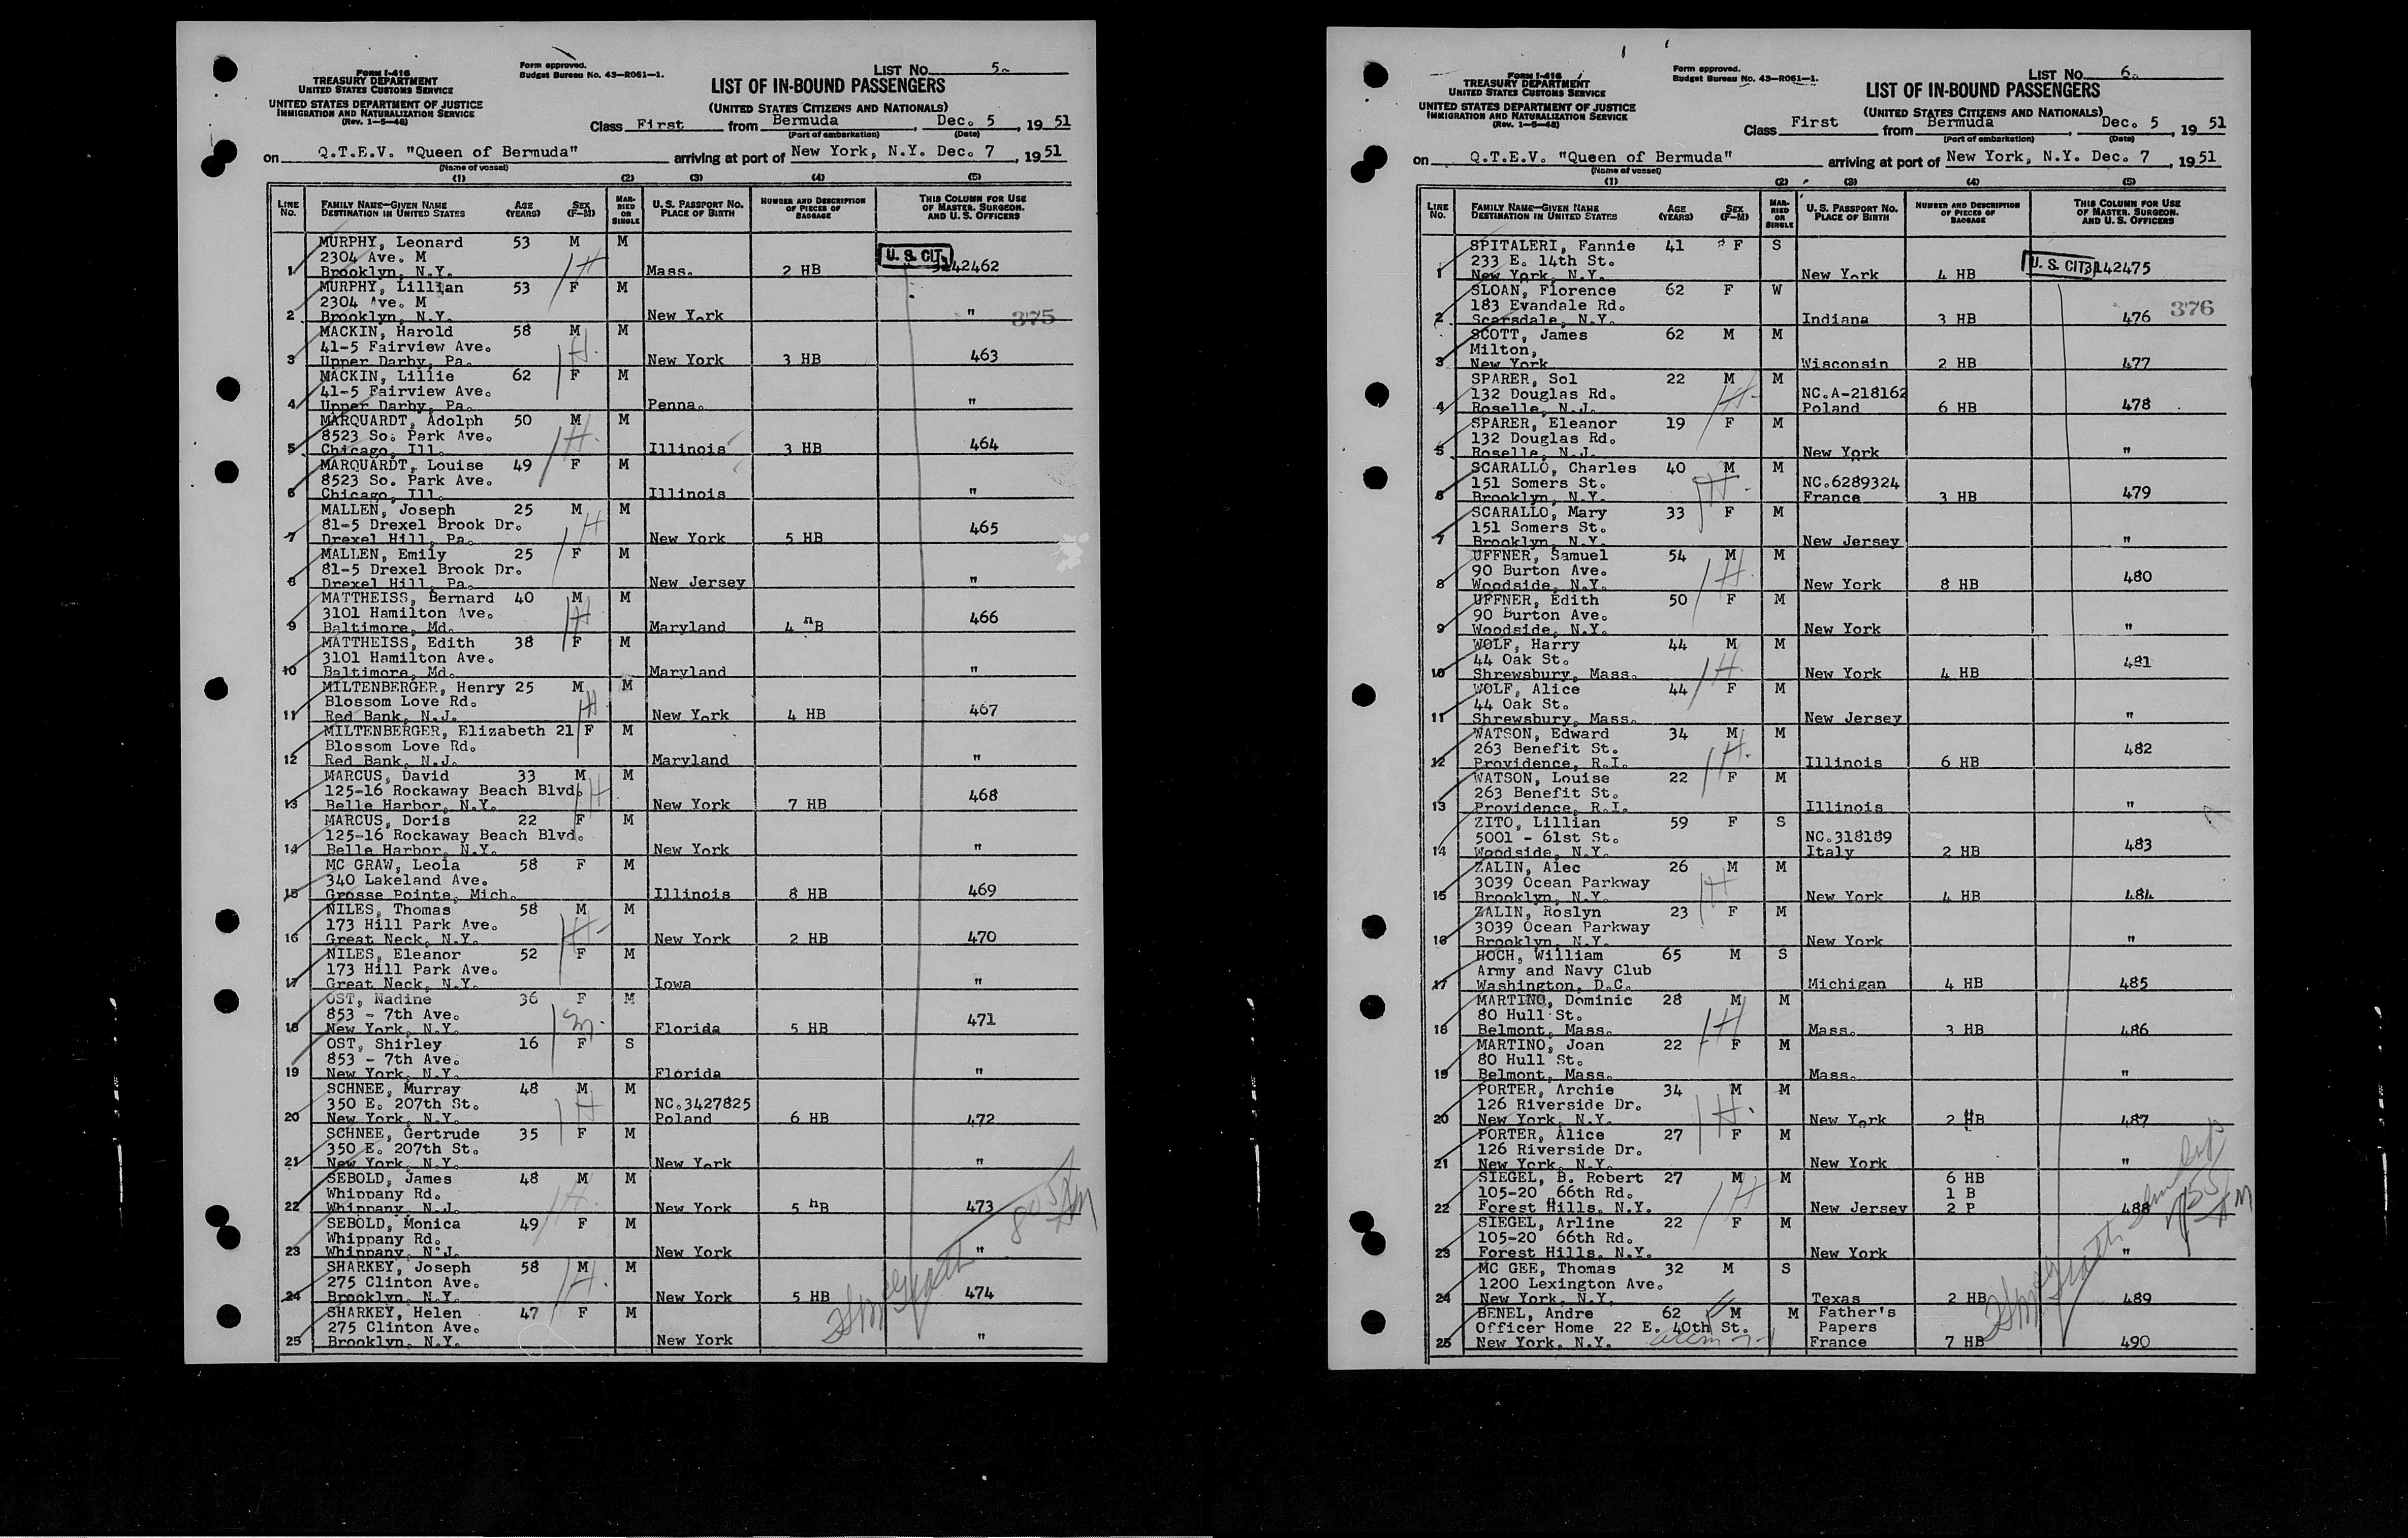 FORM I-416
TREASURY DEPARTMENT
UNITED STATES CUSTOMS SERVICE
UNITED STATES DEPARTMENT OF JUSTICE
IMMIGRATION AND NATURALIZATION SERVICE
(Rev. 1-5-48)
Form approved.
Budget Bureau No. 43-R061-1.
LIST No. 5
LIST OF IN-BOUND PASSENGERS
(UNITED STATES CITIZENS AND NATIONALS)
Class First from Bermuda, Dec. 5, 1951
(Port of embarkation) (Date)
on Q.T.E.V. "Queen of Bermuda" arriving at port of New York, N.Y. Dec. 7, 1951
(Name of vessel)
(1) (2) (3) (4) (5)
LINE No. FAMILY NAME—GIVEN NAME DESTINATION IN UNITED STATES AGE (YEARS) SEX (F-M) MARRIED OR SINGLE U. S. PASSPORT NO. PLACE OF BIRTH NUMBER AND DESCRIPTION OF PIECES OF BAGGAGE THIS COLUMN FOR USE OF MASTER, SURGEON, AND U. S. OFFICERS
MURPHY, Leonard 53 M M
2304 Ave. M U. S. CIT.
1 Brooklyn, N.Y. Mass. 2 HB 3142462
MURPHY, Lillian 53 F M
2304 Ave. M
2 Brooklyn, N.Y. New York " 375
MACKIN, Harold 58 M M
41-5 Fairview Ave.
3 Upper Darby, Pa. New York 3 HB 463
MACKIN, Lillie 62 F M
41-5 Fairview Ave.
4 Upper Darby, Pa. Penna. "
MARQUARDT, Adolph 50 M M
8523 So. Park Ave.
5 Chicago, Ill. Illinois 3 HB 464
MARQUARDT, Louise 49 F M
8523 So. Park Ave.
6 Chicago, Ill. Illinois "
MALLEN, Joseph 25 M M
81-5 Drexel Brook Dr.
7 Drexel Hill, Pa. New York 5 HB 465
MALLEN, Emily 25 F M
81-5 Drexel Brook Dr.
8 Drexel Hill, Pa. New Jersey "
MATTHEISS, Bernard 40 M M
3101 Hamilton Ave.
9 Baltimore, Md. Maryland 4 HB 466
MATTHEISS, Edith 38 F M
3101 Hamilton Ave.
10 Baltimore, Md. Maryland "
MILTENBERGER, Henry 25 M M
Blossom Love Rd.
11 Red Bank, N.J. New York 4 HB 467
MILTENBERGER, Elizabeth 21 F M
Blossom Love Rd.
12 Red Bank, N.J. Maryland "
MARCUS, David 33 M M
125-16 Rockaway Beach Blvd.
13 Belle Harbor, N.Y. New York 7 HB 468
MARCUS, Doris 22 F M
125-16 Rockaway Beach Blvd.
14 Belle Harbor, N.Y. New York "
MC GRAW, Leola 58 F M
340 Lakeland Ave.
15 Grosse Pointe, Mich. Illinois 8 HB 469
NILES, Thomas 58 M M
173 Hill Park Ave.
16 Great Neck, N.Y. New York 2 HB 470
NILES, Eleanor 52 F M
173 Hill Park Ave.
17 Great Neck, N.Y. Iowa "
OST, Nadine 36 F M
853 - 7th Ave.
18 New York, N.Y. Florida 5 HB 471
OST, Shirley 16 F S
853 - 7th Ave.
19 New York, N.Y. Florida "
SCHNEE, Murray 48 M M
350 E. 207th St. NC.3427825
20 New York, N.Y. Poland 6 HB 472
SCHNEE, Gertrude 35 F M
350 E. 207th St.
21 New York, N.Y. New York "
SEBOLD, James 48 M M
Whippany Rd.
22 Whippany, N.J. New York 5 HB 473
SEBOLD, Monica 49 F M
Whippany Rd.
23 Whippany, N.J. New York "
SHARKEY, Joseph 58 M M
275 Clinton Ave.
24 Brooklyn, N.Y. New York 5 HB 474
SHARKEY, Helen 47 F M
275 Clinton Ave.
25 Brooklyn, N.Y. New York "
FORM I-416
TREASURY DEPARTMENT
UNITED STATES CUSTOMS SERVICE
UNITED STATES DEPARTMENT OF JUSTICE
IMMIGRATION AND NATURALIZATION SERVICE
(Rev. 1-5-48)
Form approved.
Budget Bureau No. 43-R061-1.
LIST No. 6
LIST OF IN-BOUND PASSENGERS
(UNITED STATES CITIZENS AND NATIONALS)
Class First from Bermuda, Dec. 5, 1951
(Port of embarkation) (Date)
on Q.T.E.V. "Queen of Bermuda" arriving at port of New York, N.Y. Dec. 7, 1951
(Name of vessel)
(1) (2) (3) (4) (5)
LINE No. FAMILY NAME—GIVEN NAME DESTINATION IN UNITED STATES AGE (YEARS) SEX (F-M) MARRIED OR SINGLE U. S. PASSPORT NO. PLACE OF BIRTH NUMBER AND DESCRIPTION OF PIECES OF BAGGAGE THIS COLUMN FOR USE OF MASTER, SURGEON, AND U. S. OFFICERS
SPITALERI, Fannie 41 F S
233 E. 14th St. U. S. CIT.
1 New York, N.Y. New York 4 HB 3142475
SLOAN, Florence 62 F W
183 Evandale Rd.
2 Scarsdale, N.Y. Indiana 3 HB 476 376
SCOTT, James 62 M M
Milton,
3 New York Wisconsin 2 HB 477
SPARER, Sol 22 M M
132 Douglas Rd. NC.A-218162
4 Roselle, N.J. Poland 6 HB 478
SPARER, Eleanor 19 F M
132 Douglas Rd.
5 Roselle, N.J. New York "
SCARALLO, Charles 40 M M
151 Somers St. NC.6289324
6 Brooklyn, N.Y. France 3 HB 479
SCARALLO, Mary 33 F M
151 Somers St.
7 Brooklyn, N.Y. New Jersey "
UFFNER, Samuel 54 M M
90 Burton Ave.
8 Woodside, N.Y. New York 8 HB 480
UFFNER, Edith 50 F M
90 Burton Ave.
9 Woodside, N.Y. New York "
WOLF, Harry 44 M M
44 Oak St.
10 Shrewsbury, Mass. New York 4 HB 481
WOLF, Alice 44 F M
44 Oak St.
11 Shrewsbury, Mass. New Jersey "
WATSON, Edward 34 M M
263 Benefit St.
12 Providence, R.I. Illinois 6 HB 482
WATSON, Louise 22 F M
263 Benefit St.
13 Providence, R.I. Illinois "
ZITO, Lillian 59 F S
5001 - 61st St. NC.318189
14 Woodside, N.Y. Italy 2 HB 483
ZALIN, Alec 26 M M
3039 Ocean Parkway
15 Brooklyn, N.Y. New York 4 HB 484
ZALIN, Roslyn 23 F M
3039 Ocean Parkway
16 Brooklyn, N.Y. New York "
HOCH, William 65 M S
Army and Navy Club
17 Washington, D.C. Michigan 4 HB 485
MARTINO, Dominic 28 M M
80 Hull St.
18 Belmont, Mass. Mass. 3 HB 486
MARTINO, Joan 22 F M
80 Hull St.
19 Belmont, Mass. Mass. "
PORTER, Archie 34 M M
126 Riverside Dr.
20 New York, N.Y. New York 2 HB 487
PORTER, Alice 27 F M
126 Riverside Dr.
21 New York, N.Y. New York "
SIEGEL, B. Robert 27 M M 6 HB
105-20 66th Rd. 1 B
22 Forest Hills, N.Y. New Jersey 2 P 488
SIEGEL, Arline 22 F M
105-20 66th Rd.
23 Forest Hills, N.Y. New York "
MC GEE, Thomas 32 M S
1200 Lexington Ave.
24 New York, N.Y. Texas 2 HB 489
BENEL, Andre 62 M M Father's
Officer Home 22 E. 40th St. Papers
25 New York, N.Y. France 7 HB 490